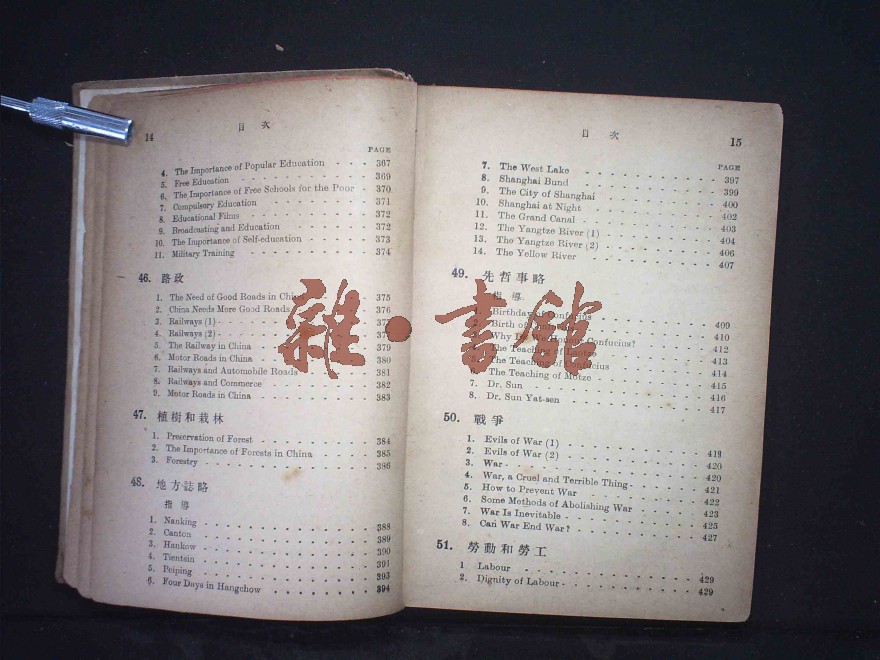 14
目 次
PAGE
4. The Importance of Popular Education - - - 367
5. Free Education - - - - - - - 369
6. The Importance of Free Schools for the Poor - 370
7. Compulsory Education - - - - - - 371
8. Educational Films - - - - - - - 372
9. Broadcasting and Education - - - - - 372
10. The Importance of Self-education - - - - 373
11. Military Training - - - - - - - 374
46. 路政
1. The Need of Good Roads in China 375
2. China Needs More Good Roads 376
3. Railways (1) 377
4. Railways (2)
5. The Railway in China 379
6. Motor Roads in China 380
7. Railways and Automobile Roads 381
8. Railways and Commerce - - - - - - 382
9. Motor Roads in China - - - - - - 383
47. 植樹和栽林
1. Preservation of Forest - - - - - - 384
2. The Importance of Forests in China - - - 385
3. Forestry - - - - - - - - - 386
48. 地方誌略
指 導
1. Nanking - - - - - - - - - 388
2. Canton - - - - - - - - - 389
3. Hankow - - - - - - - - - 390
4. Tientsin - - - - - - - - - 391
5. Peiping - - - - - - - - - 393
6. Four Days in Hangchow - - - - - - 394
目 次
15
PAGE
7. The West Lake - - - - - - - - 397
8. Shanghai Bund - - - - - - - - 399
9. The City of Shanghai - - - - - - - 400
10. Shanghai at Night - - - - - - - 402
11. The Grand Canal - - - - - - - 403
12. The Yangtze River (1) - - - - - - 404
13. The Yangtze River (2) - - - - - - 406
14. The Yellow River - - - - - - - 407
49. 先哲事略
指 導
1. Birthday of Confucius 409
2. Birth of 410
3. Why Do We Honour Confucius? 412
4. The Teaching of Laotze 413
5. The Teaching of Confucius 414
6. The Teaching of Motze - - - - - - 415
7. Dr. Sun - - - - - - - - - 416
8. Dr. Sun Yat-sen - - - - - - - 417
50. 戰爭
1. Evils of War (1) - - - - - - - 419
2. Evils of War (2) - - - - - - - 420
3. War - - - - - - - - - - 420
4. War, a Cruel and Terrible Thing - - - - 421
5. How to Prevent War - - - - - - 422
6. Some Methods of Abolishing War - - - - 423
7. War Is Inevitable - - - - - - - 425
8. Can War End War? - - - - - - - 427
51. 勞動和勞工
1 Labour - - - - - - - - - 429
2. Dignity of Labour - - - - - - - 429
雜·書館